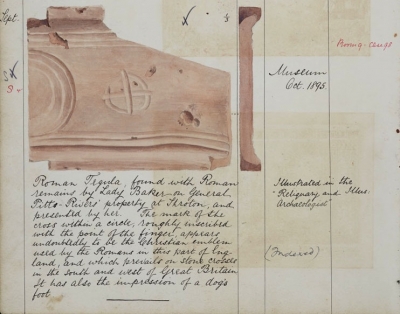 Sept
⅛
Rooing-Case
3
3
Museum
Oct. 1895.
Roman Tegula, found with Roman
remains by Lady Baker on General
Pitt-Rivers' property at Iwerton, and
presented by her. The mark of the
cross within a circle, roughly inscribed
with the point of the finger, appears
undoubtedly to be the Christian emblem
used by the Romans in this part of Eng-
land, and which prevails on stone crosses
in the south and west of Great Britain
It has also the impression of a dog's
foot
Illustrated in the
"Reliquary and Illus.
Archæologist"
(Indexed)